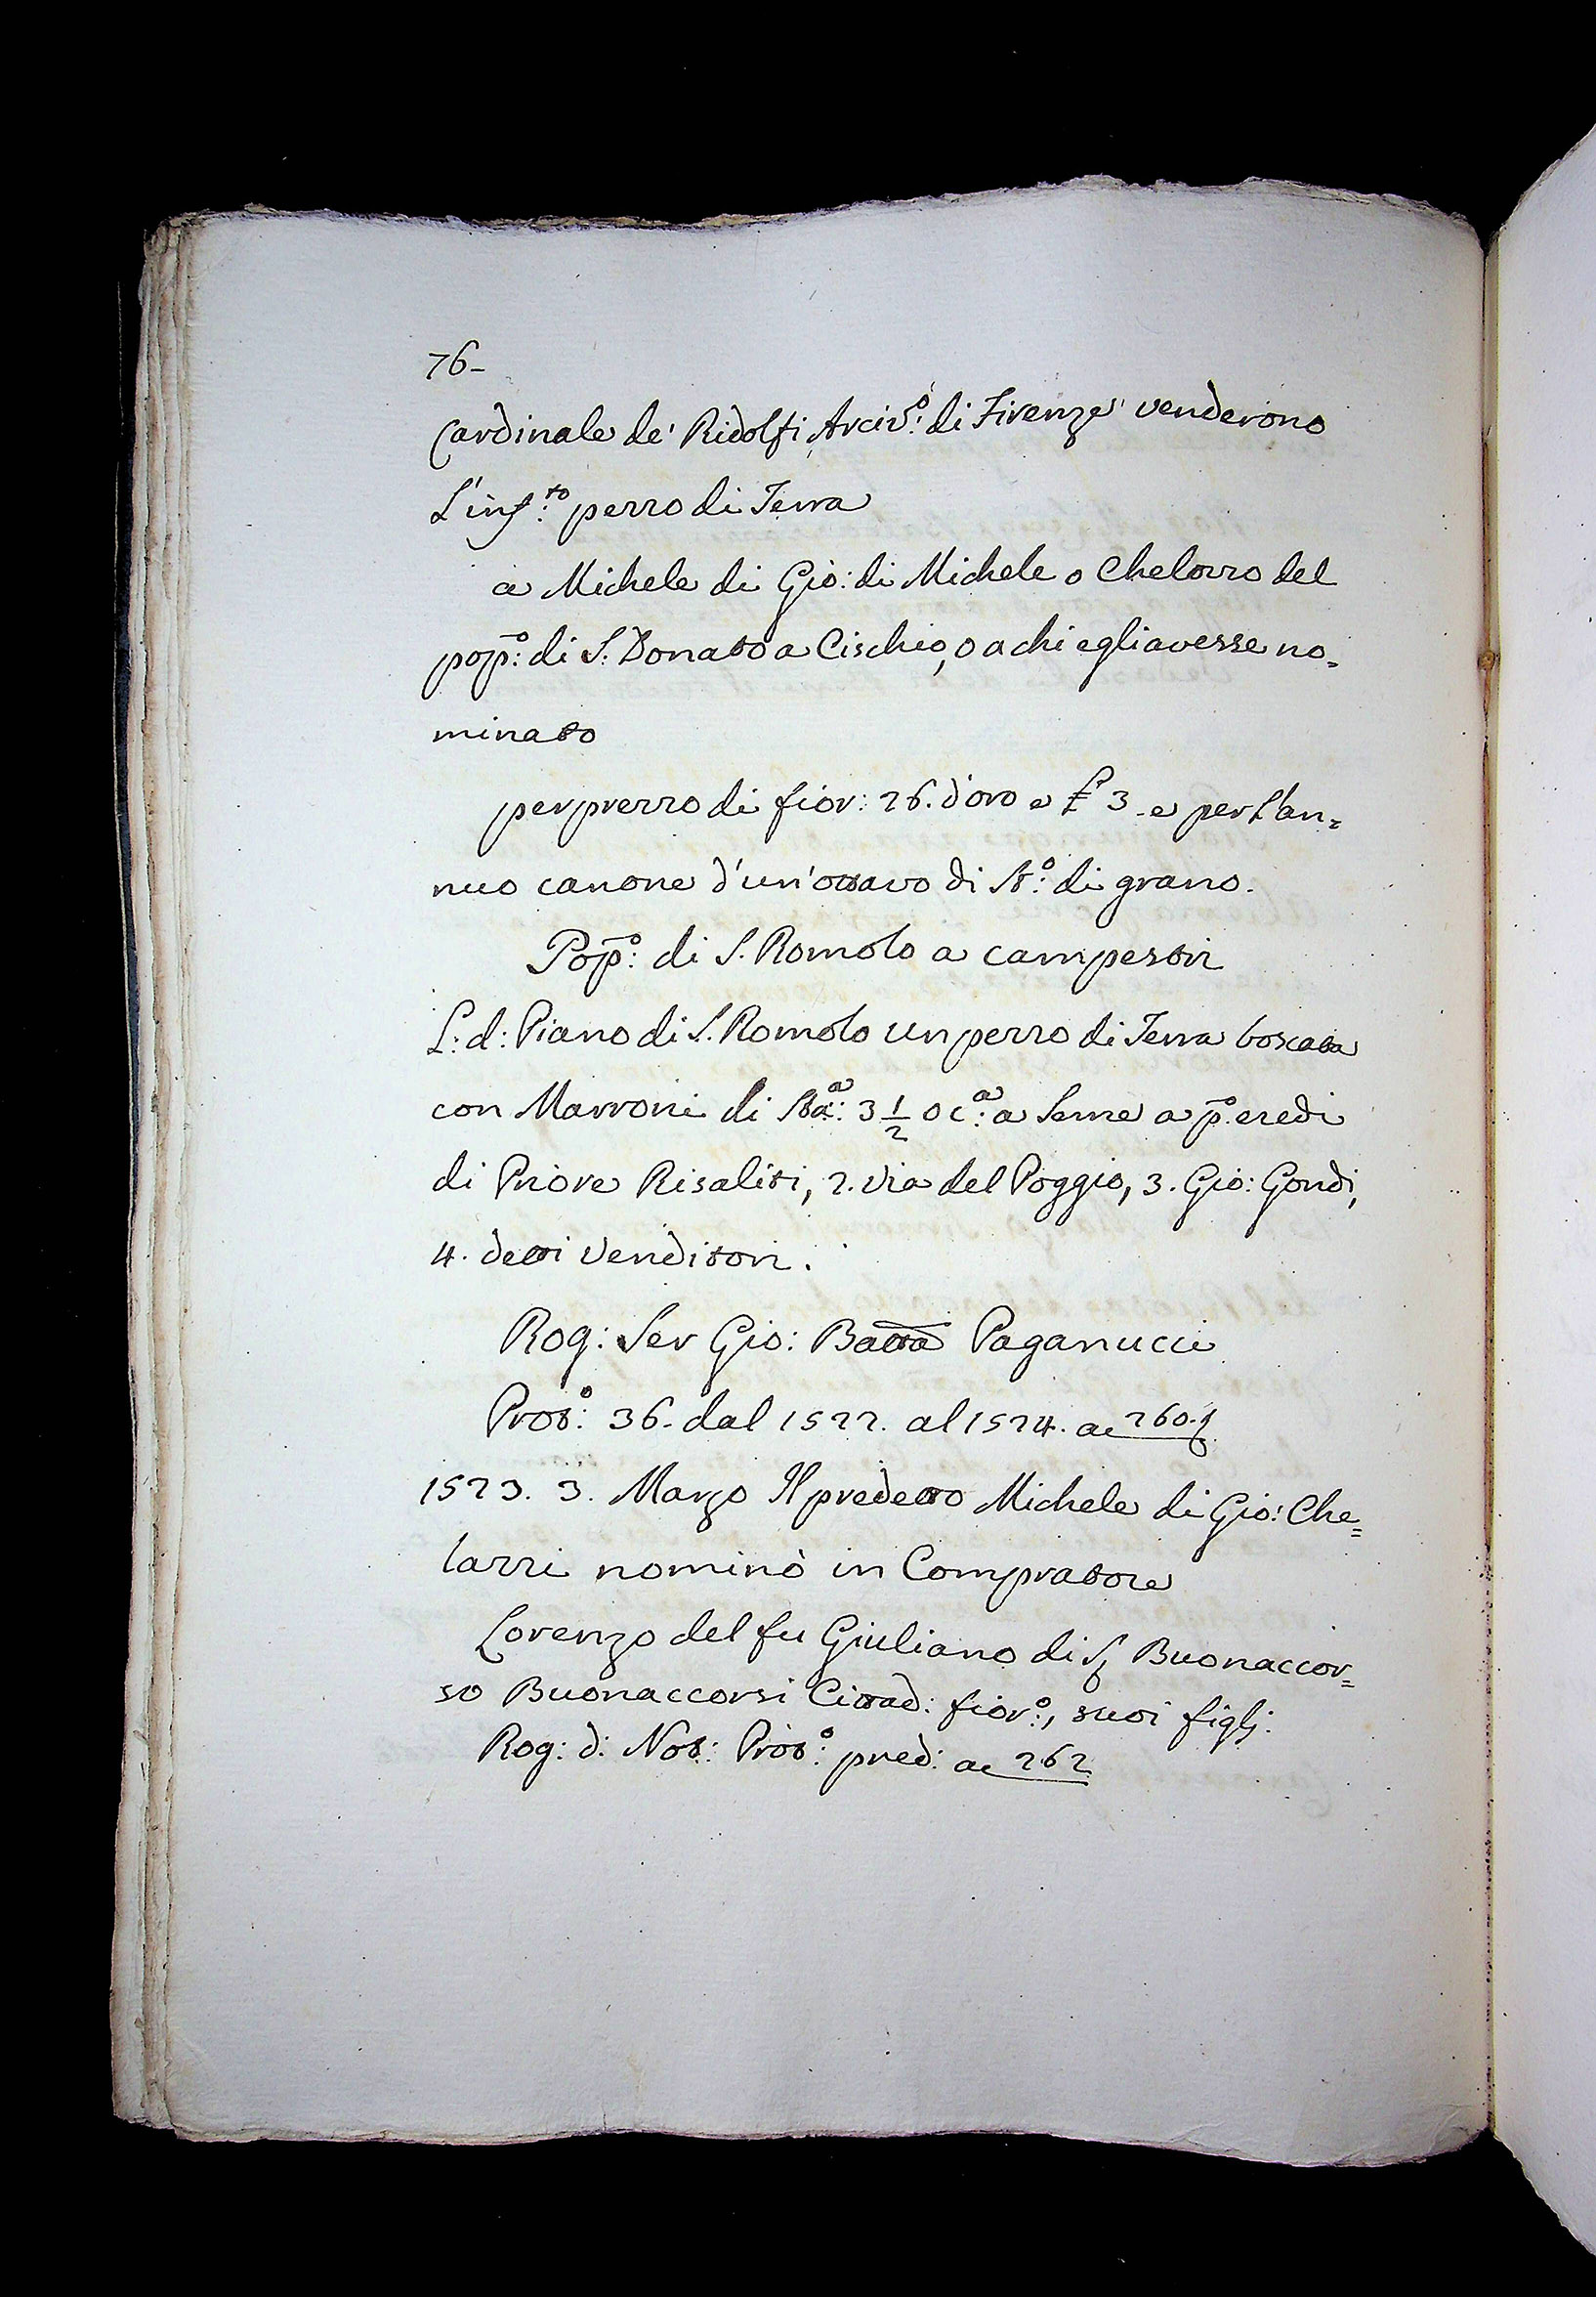 76-
Cardinale de' Ridolfi, Arciv:º di Firenze venderono
L'inf:to pezzo di Terra
a Michele di Gio: di Michele o Chelozzo del
pop:º di S: Donato a Cischio, o a chi egli avesse no=
minato
per prezzo di fior: 26. d'oro e £ 3 - e per l'an=
nuo canone d'un'ottavo di St:º di grano.
Pop:º di S. Romolo a campestri
L: d: Piano di S. Romolo un pezzo di Terra boscata
con Marroni di Sta:ª 3 1/2 o c:ª a Seme a pº eredi
di Priore Risaliti, 2. Via del Poggio, 3. Gio: Gondi,
4. detti Venditori.
Rog: Ser Gio: Batta Paganucci
Prot:º 36. dal 1522. al 1524. ac 260.
1523. 3. Marzo Il predetto Michele di Gio: Che=
lazzi nominò in Compratore
Lorenzo del fu Giuliano di S. Buonaccor=
so Buonaccorsi Cittad: fior:º, suoi figlj:
Rog: d: Not: Prot:º pred: ac 262